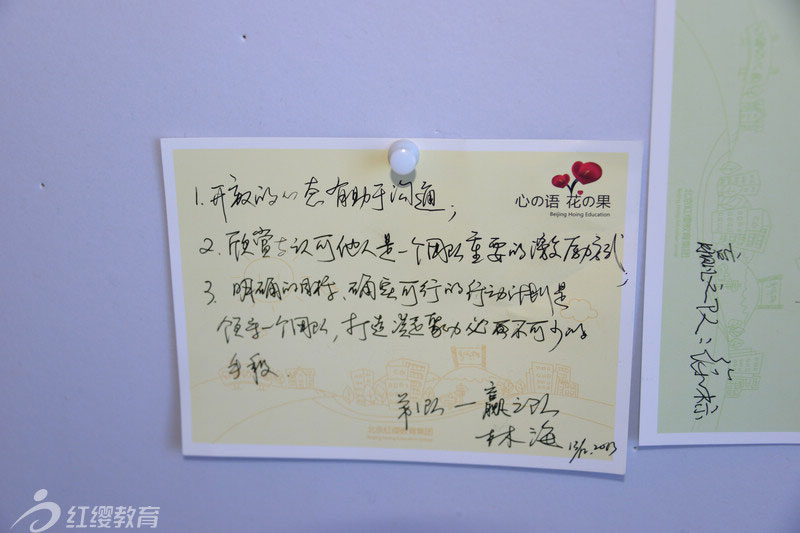 心の语 花の果
Beijing Hoing Education
1. 开放的心态有助于沟通；
2. 欣赏与认可他人是一个团队重要的激励方式；
3. 明确的目标、确实可行的行动计划是
领导一个团队，打造凝聚力必不可少的
手段.
第1队—赢之队
林海 13/12.2013
北京红缨教育集团
Beijing Hoing Education Group
赢之队：
红缨教育